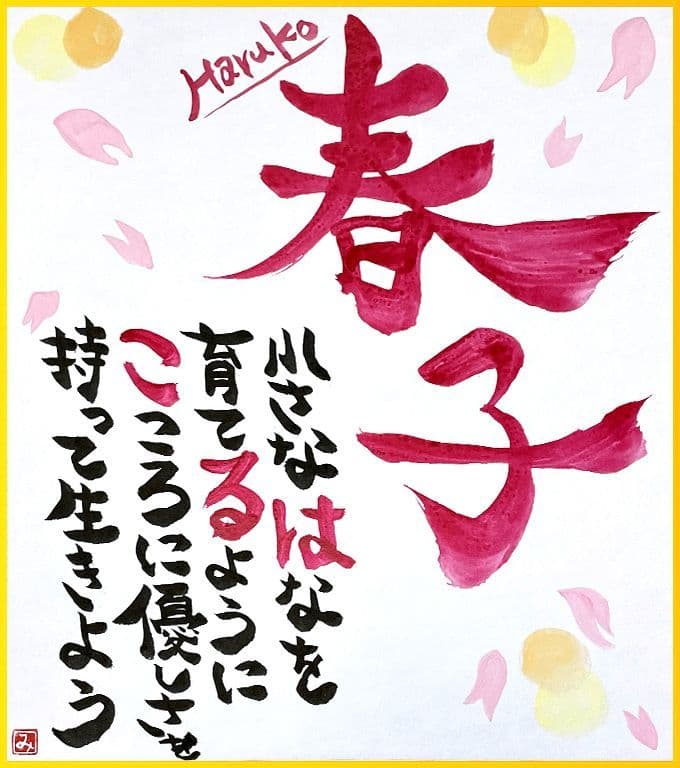 Haruko
春子
小さなはなを
育てるように
こころに優しさを
持って生きよう
み